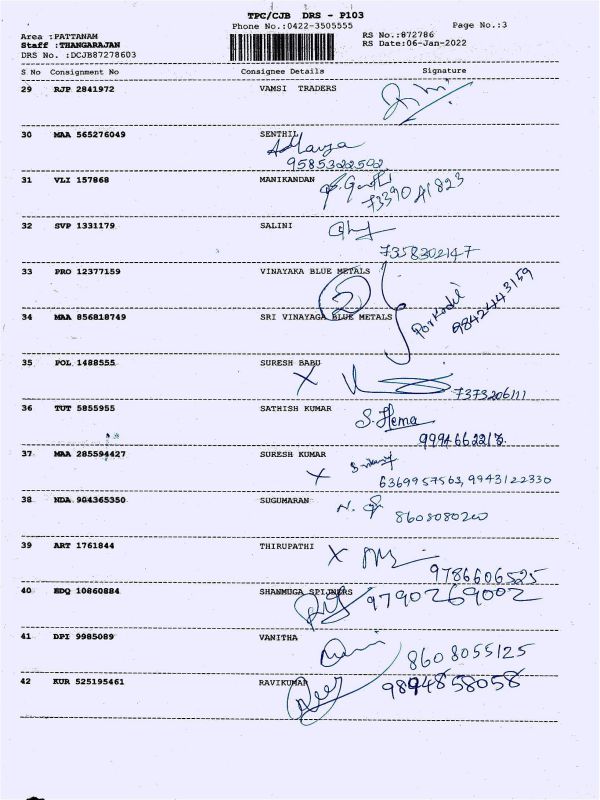 TPC/CJB DRS - P103
Phone No.:0422-3505555
Page No.:3
Area :PATTANAM
RS No.:872786
Staff :THANGARAJAN
RS Date:06-Jan-2022
DRS No. :DCJB87278603
S No Consignment No Consignee Details Signature
29 RJP 2841972 VAMSI TRADERS
30 MAA 565276049 SENTHIL
9585322502
31 VLI 157868 MANIKANDAN
32 SVP 1331179 SALINI
7358302147
33 PRO 12377159 VINAYAKA BLUE METALS
2
34 MAA 856818749 SRI VINAYAGA BLUE METALS
Porkodi
9842443159
35 POL 1488555 SURESH BABU
X
7373206111
36 TUT 5855955 SATHISH KUMAR
S. Hema
37 MAA 285594427 SURESH KUMAR
X 6369957563, 9943122330
38 NDA 904365350 SUGUMARAN
8608080200
39 ART 1761844 THIRUPATHI
X
9786606525
40 HDQ 10860884 SHANMUGA SPINNERS
9790269002
41 DPI 9985089 VANITHA
8608055125
42 KUR 525195461 RAVIKUMAR
9894858058